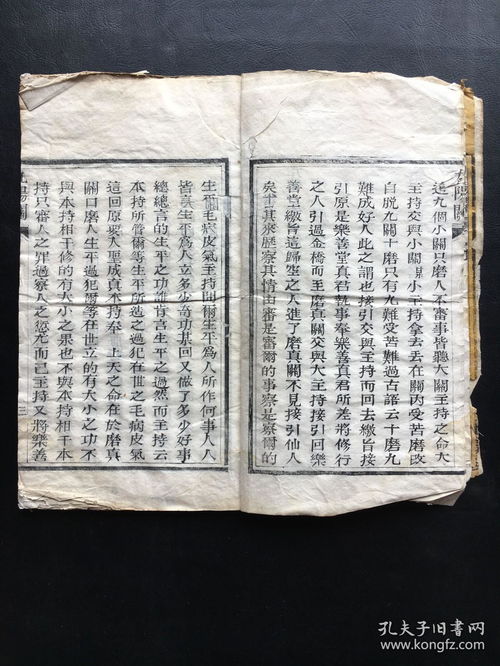 近九個小關只磨人不審事皆聽大關主持之命大
主持交與小關小主持拿去丢在關內受苦磨改
自脫九關十磨只有九難受苦難過古語云十磨九
難成好人此之謂也接引交與主持而回去繳旨接
引原是樂善堂真君執事奉樂善真君所差將修行
之人引過金橋而至磨真關交與大主持接引回樂
善堂繳旨這歸空之人進了磨真關不見接引仙人
矣主其來歷察其情由審是審爾的事察是察爾的
生平毛病皮氣主持問爾生平為人所作何事人人
皆言生平為人立多少奇功某回又做了多少好事
總總言的生平之功誰肯言生平之過然而主持云
本持所管爾等生平所造之過犯在世之毛病皮氣
這回原要人聖成真本持奉 上天之命在於磨真
關口磨人生平過犯爾等在世立的有大小之功不
與本持相干修的有大小之果也不與本持相干本
持只審人之罪過察人之愆尤而已主持又將樂善
陽關
三
孔夫子旧書网
www.kongfz.com